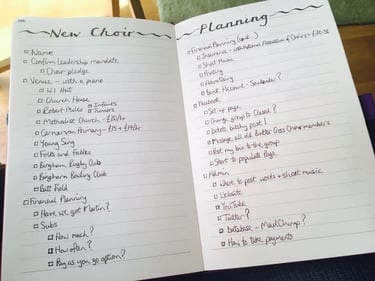 New Choir
Name
Confirm leadership mandate
Choir pledge
Venue - with a piano
W.I Hut
Church House
Robert Miles Infants
Juniors
Methodist Church - £10/hr
Carnarvon Primary - £15 + £19/hr
Young Sing
Folks and Fables
Bingham Rugby Club
Bingham Bowling Club
Butt Field
Financial Planning
Have we got Martin?
Subs
How much?
How often?
Pay as you go option?
Planning
Financial Planning (cont.)
Insurance - with National Association of Choirs
Sheet Music
Printing
Advertising
Bank Account - Santander?
Facebook
Set up page
Change group to Closed?
Delete bitchy post!
Message all old Butter Cross Choir members
Post my bio to the group
Start to populate page
Admin
Where to post words + sheet music
Website
YouTube
Twitter?
Database - MailChimp?
How to take payments